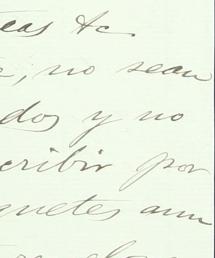 eas &c
e, no sean
dos y no
cribir por
quetes aun